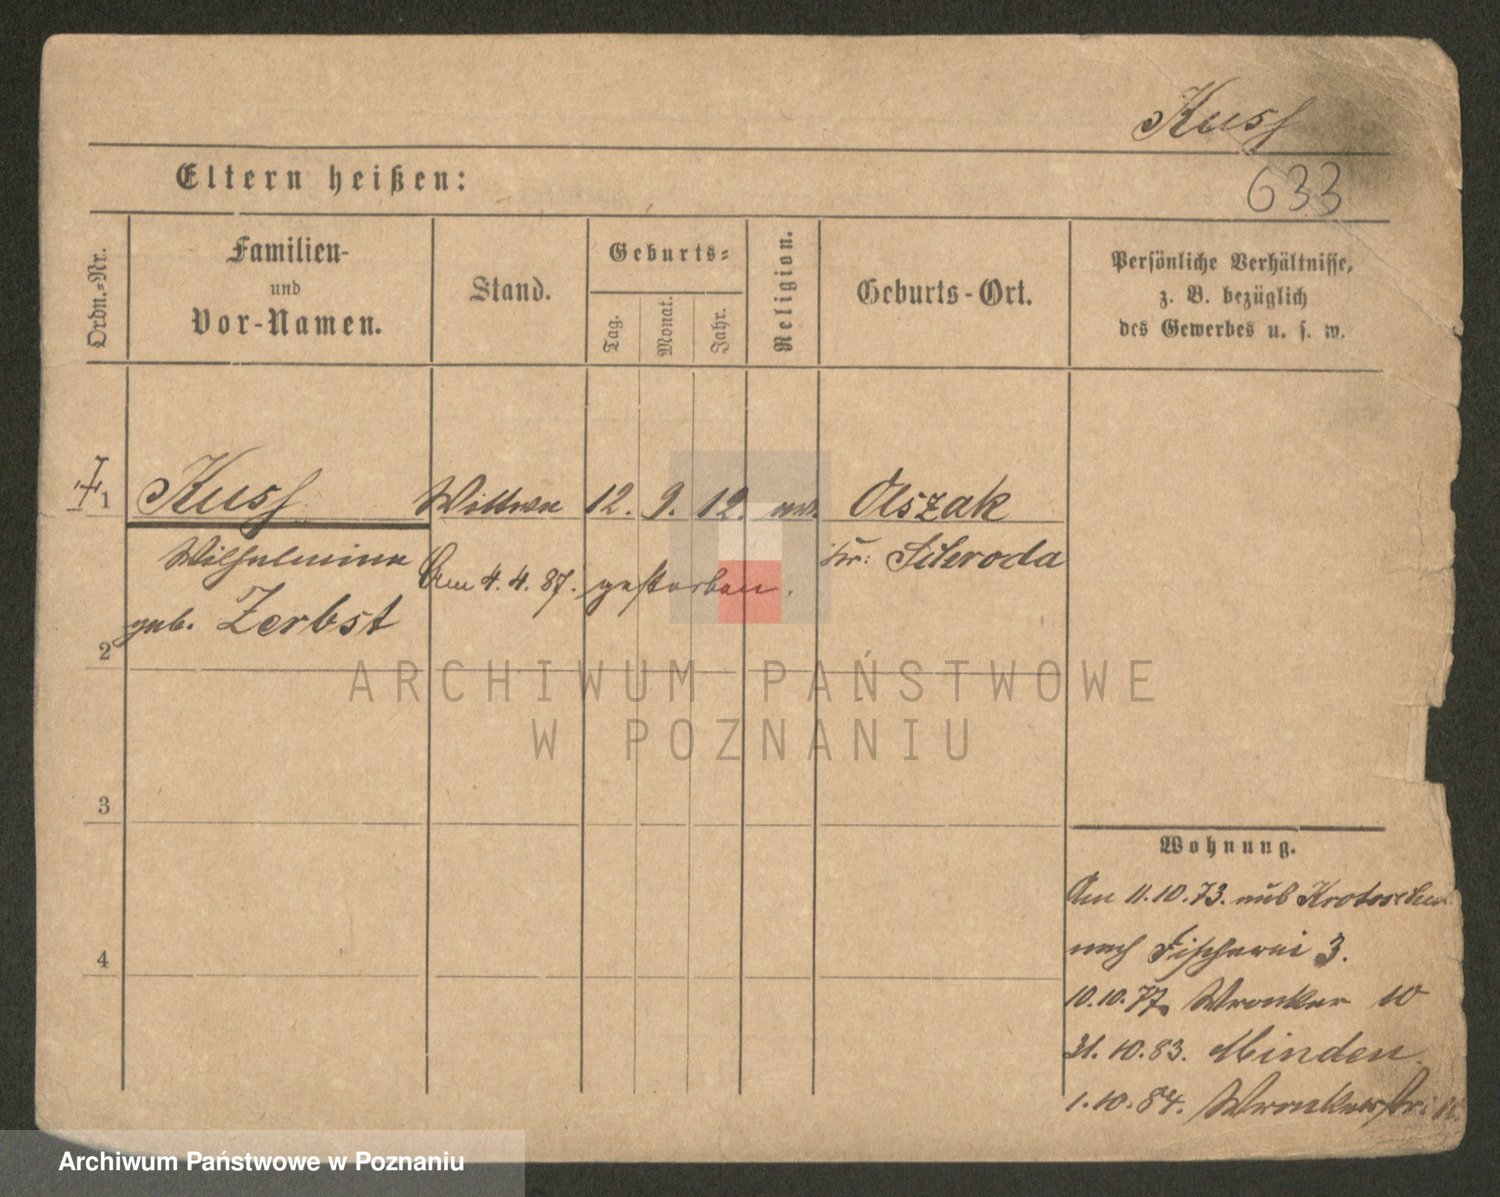 Kuss
633
Eltern heißen:
Ordn.-Nr.
Familien-
und
Vor-Namen.
Stand.
Geburts-
Tag.
Monat.
Jahr.
Religion.
Geburts-Ort.
Persönliche Verhältnisse,
z. B. bezüglich
des Gewerbes u. s. w.
1 Kuss Wittwe 12. 9. 12. ev. Olszak
Wilhelmine Kr: Schroda
Am 4. 4. 87. gestorben.
geb. Zerbst
2
ARCHIWUM PAŃSTWOWE
W POZNANIU
3
Wohnung.
Am 11.10.73. aus Krotoschin
nach Fischerei 3.
4
10.10.77 Wronker 10
31.10.83. Minden
1.10.84. Wronkerstr:
Archiwum Państwowe w Poznaniu